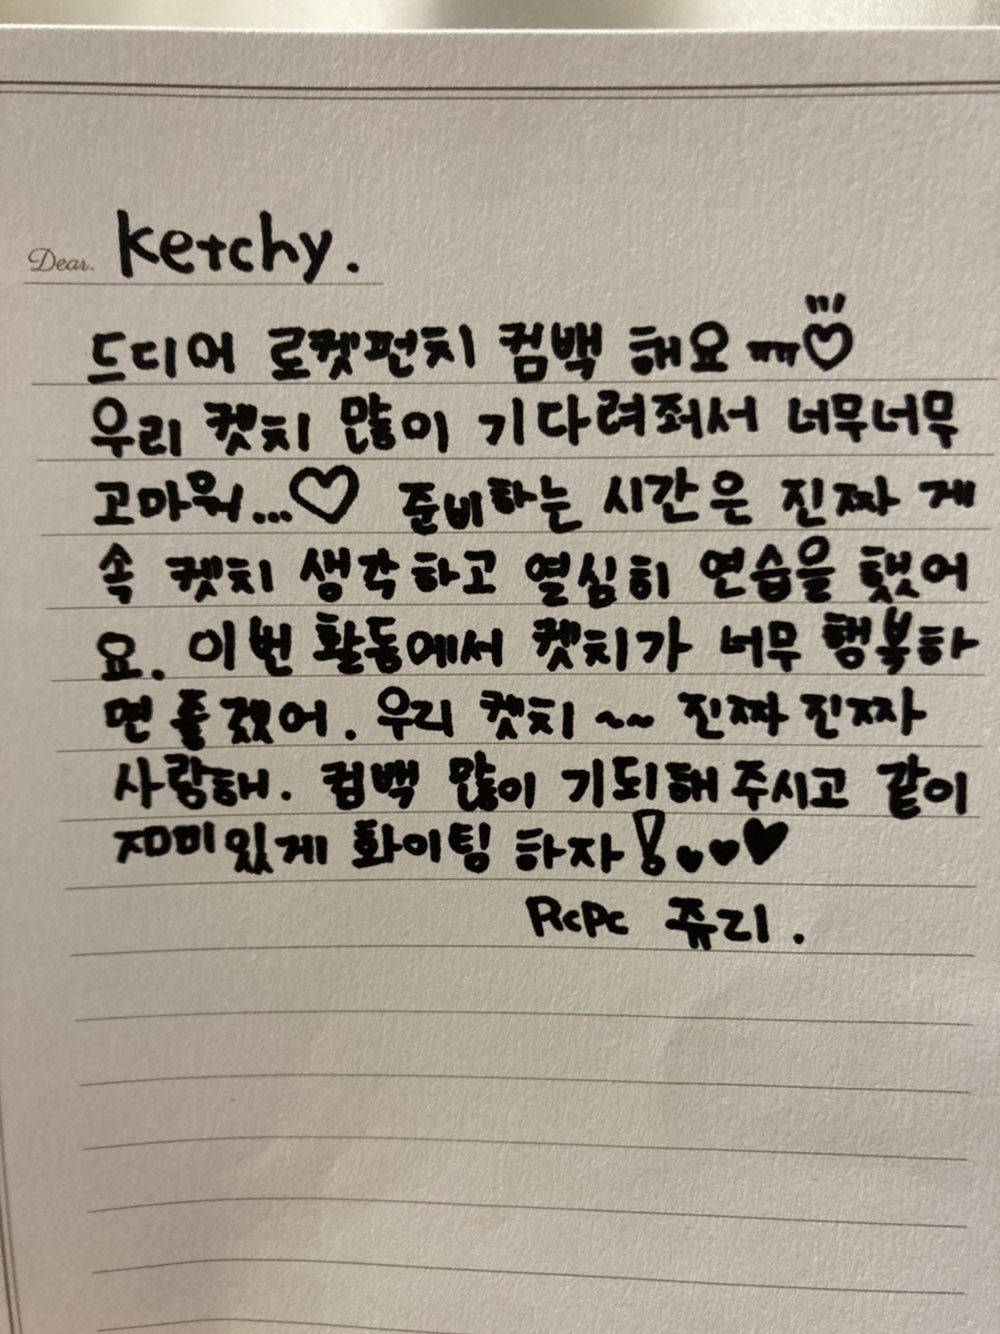 Dear. Ketchy.
드디어 로켓펀치 컴백 해요 ㅠㅠ♡
우리 켓치 많이 기다려줘서 너무너무
고마워...♡ 준비하는 시간은 진짜 게
속 켓치 생각하고 열심히 연습을 했어
요. 이번 활동에서 켓치가 너무 행복하
면 좋겠어. 우리 켓치 ~~ 진짜 진짜
사랑해. 컴백 많이 기되해 주시고 같이
재미있게 화이팅 하자! ♥♥♥
RcPc 쥬리.